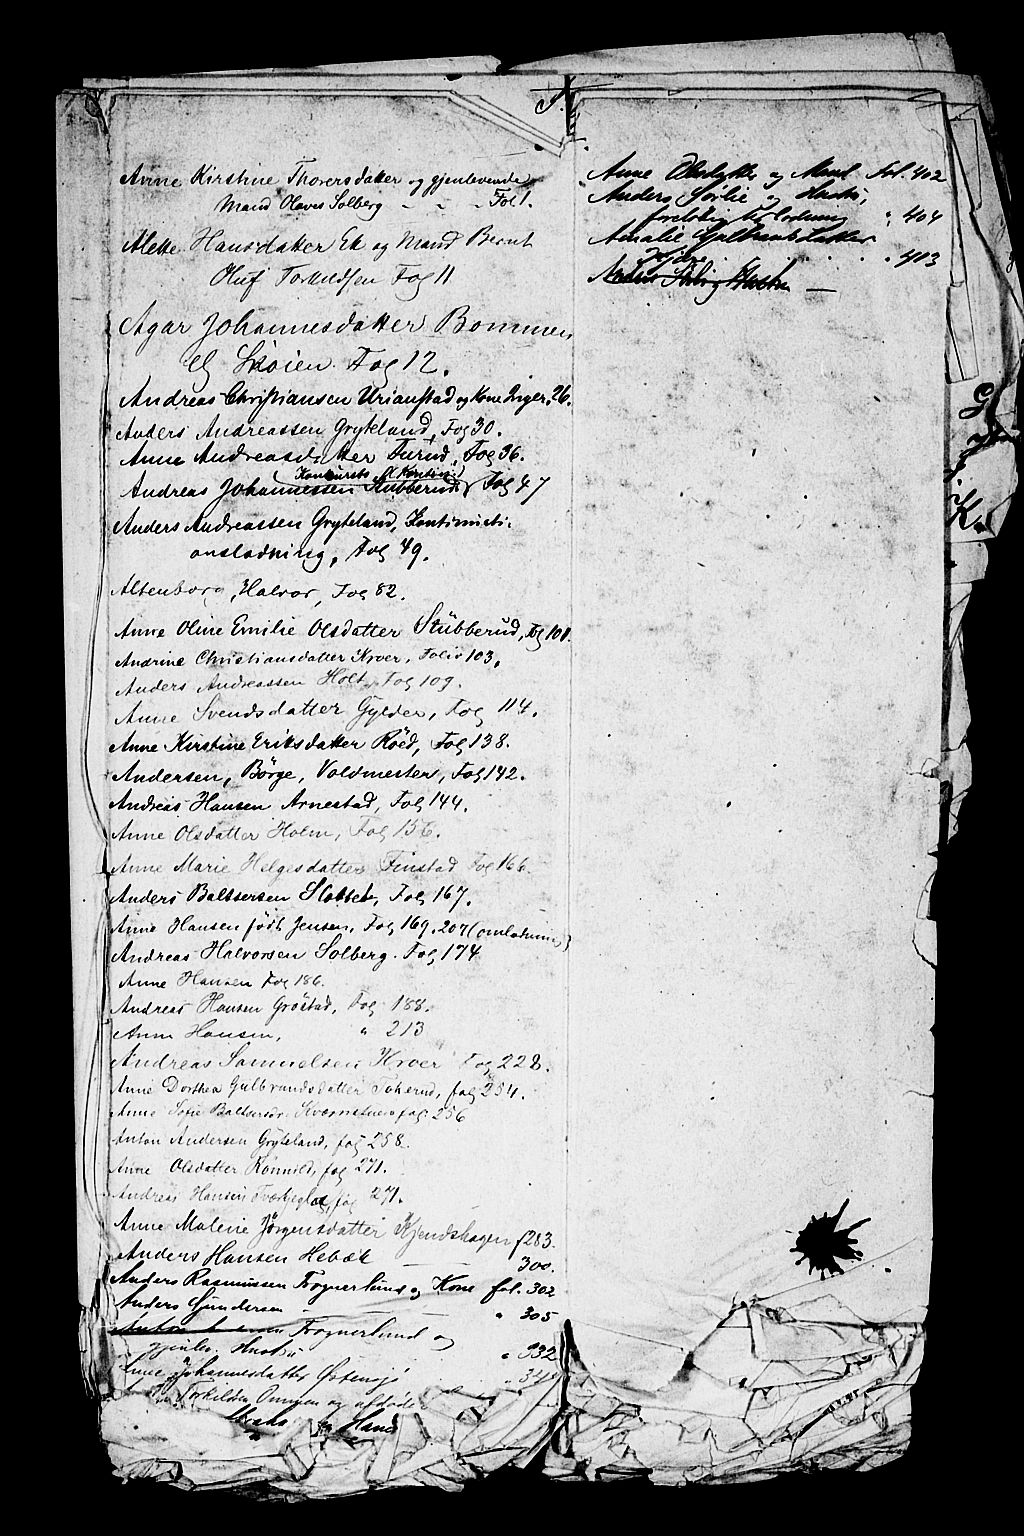 Anne Kirstine Thorersdatter og gjenlevende
Mand Olaves Solberg - - - Fol 1.
Alette Hansdatter Ek og Mand Bernt
Oluf Torkildsen Fol 11
Agar Johannesdatter Bommen
Skøien Fol 12.
Andreas Christiansen Urianstad og Kone Inger. 26.
Anders Andreassen Gryteland, Fol 30.
Anne Andreasdatter Furud, Fol 36.
Konkurs
Andreas Johannessen Stubberud Fol 47
Anders Andreassen Gryteland,
Fol 49.
Altenborg, Halvor, Fol 82.
Anne Oline Emilie Olsdatter Stübberud, Fol 101.
Andrine Christiansdatter Kroer, Folio 103.
Anders Andreassen Holt, Fol 109.
Anne Svendsdatter Gylder, Fol 114.
Anne Kirstine Eriksdatter Röed, Fol 138.
Andersen, Börge, Valdmester, Fol 142.
Andreas Hansen Arnestad, Fol 144.
Anne Olsdatter Holm, Fol 156.
Anne Marie Helgesdatter Finstad Fol 166.
Anders Baltsersen Slottet, Fol 167.
Anne Hansen født Jensen, Fol 169. 207 (omladning)
Andreas Halvorsen Solberg. Fol 174
Anne Hansen Fol 186.
Andreas Hansen Grøstad, Fol 188.
Anne Hansen, " 213
Andreas Samuelsen Kroer Fol 228.
Anne Dorthea Gulbrandsdatter Sokerud, fol 254.
Anne Sofie Baltsersdr. Kværnstuen fol. 256
Anton Andersen Gryteland, fol 258.
Anne Olsdatter Rönnild, fol 271.
Andreas Hansen fol 271.
Anne Malene Jörgensdatter Kjendshagen f 283.
Anders Hansen Hebæk 300.
Anders Rasmussen Frognerlund og Kone fol. 302
Anders Gundersen " 305
Anton Frognerlund og
gjenlev. Hustru " 332
Johannesdatter Østensjø
Torkildsen og afdøde
Hand
Anne Olsdatter og Mand fol. 402
Anders Sørlie og Hustru,
" 404
Amalie Gulbrandsdatter
" 413
Anders Sørli og Hustru —
G
K.